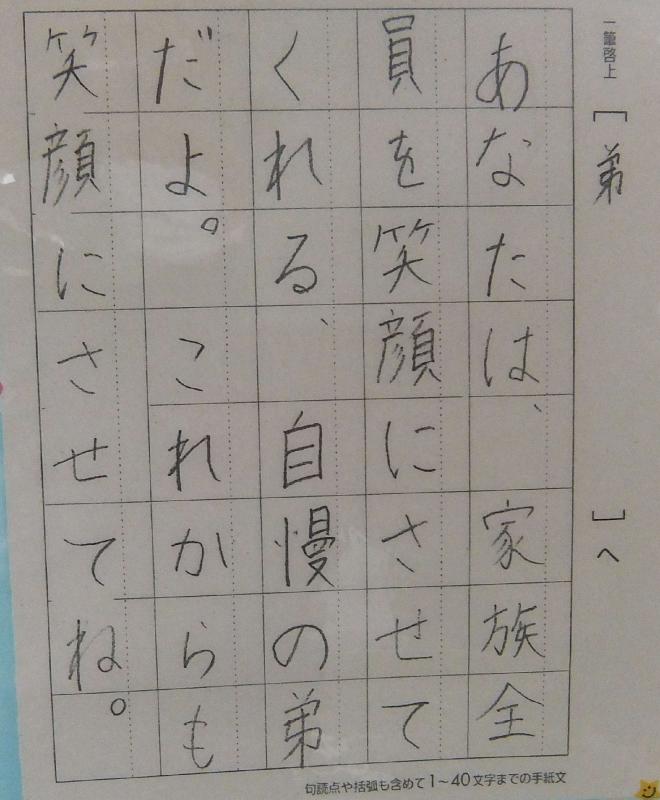 一筆啓上 [弟]へ
あなたは、家族全
員を笑顔にさせて
くれる、自慢の弟
だよ。これからも
笑顔にさせてね。
句読点や括弧も含めて1～40文字までの手紙文